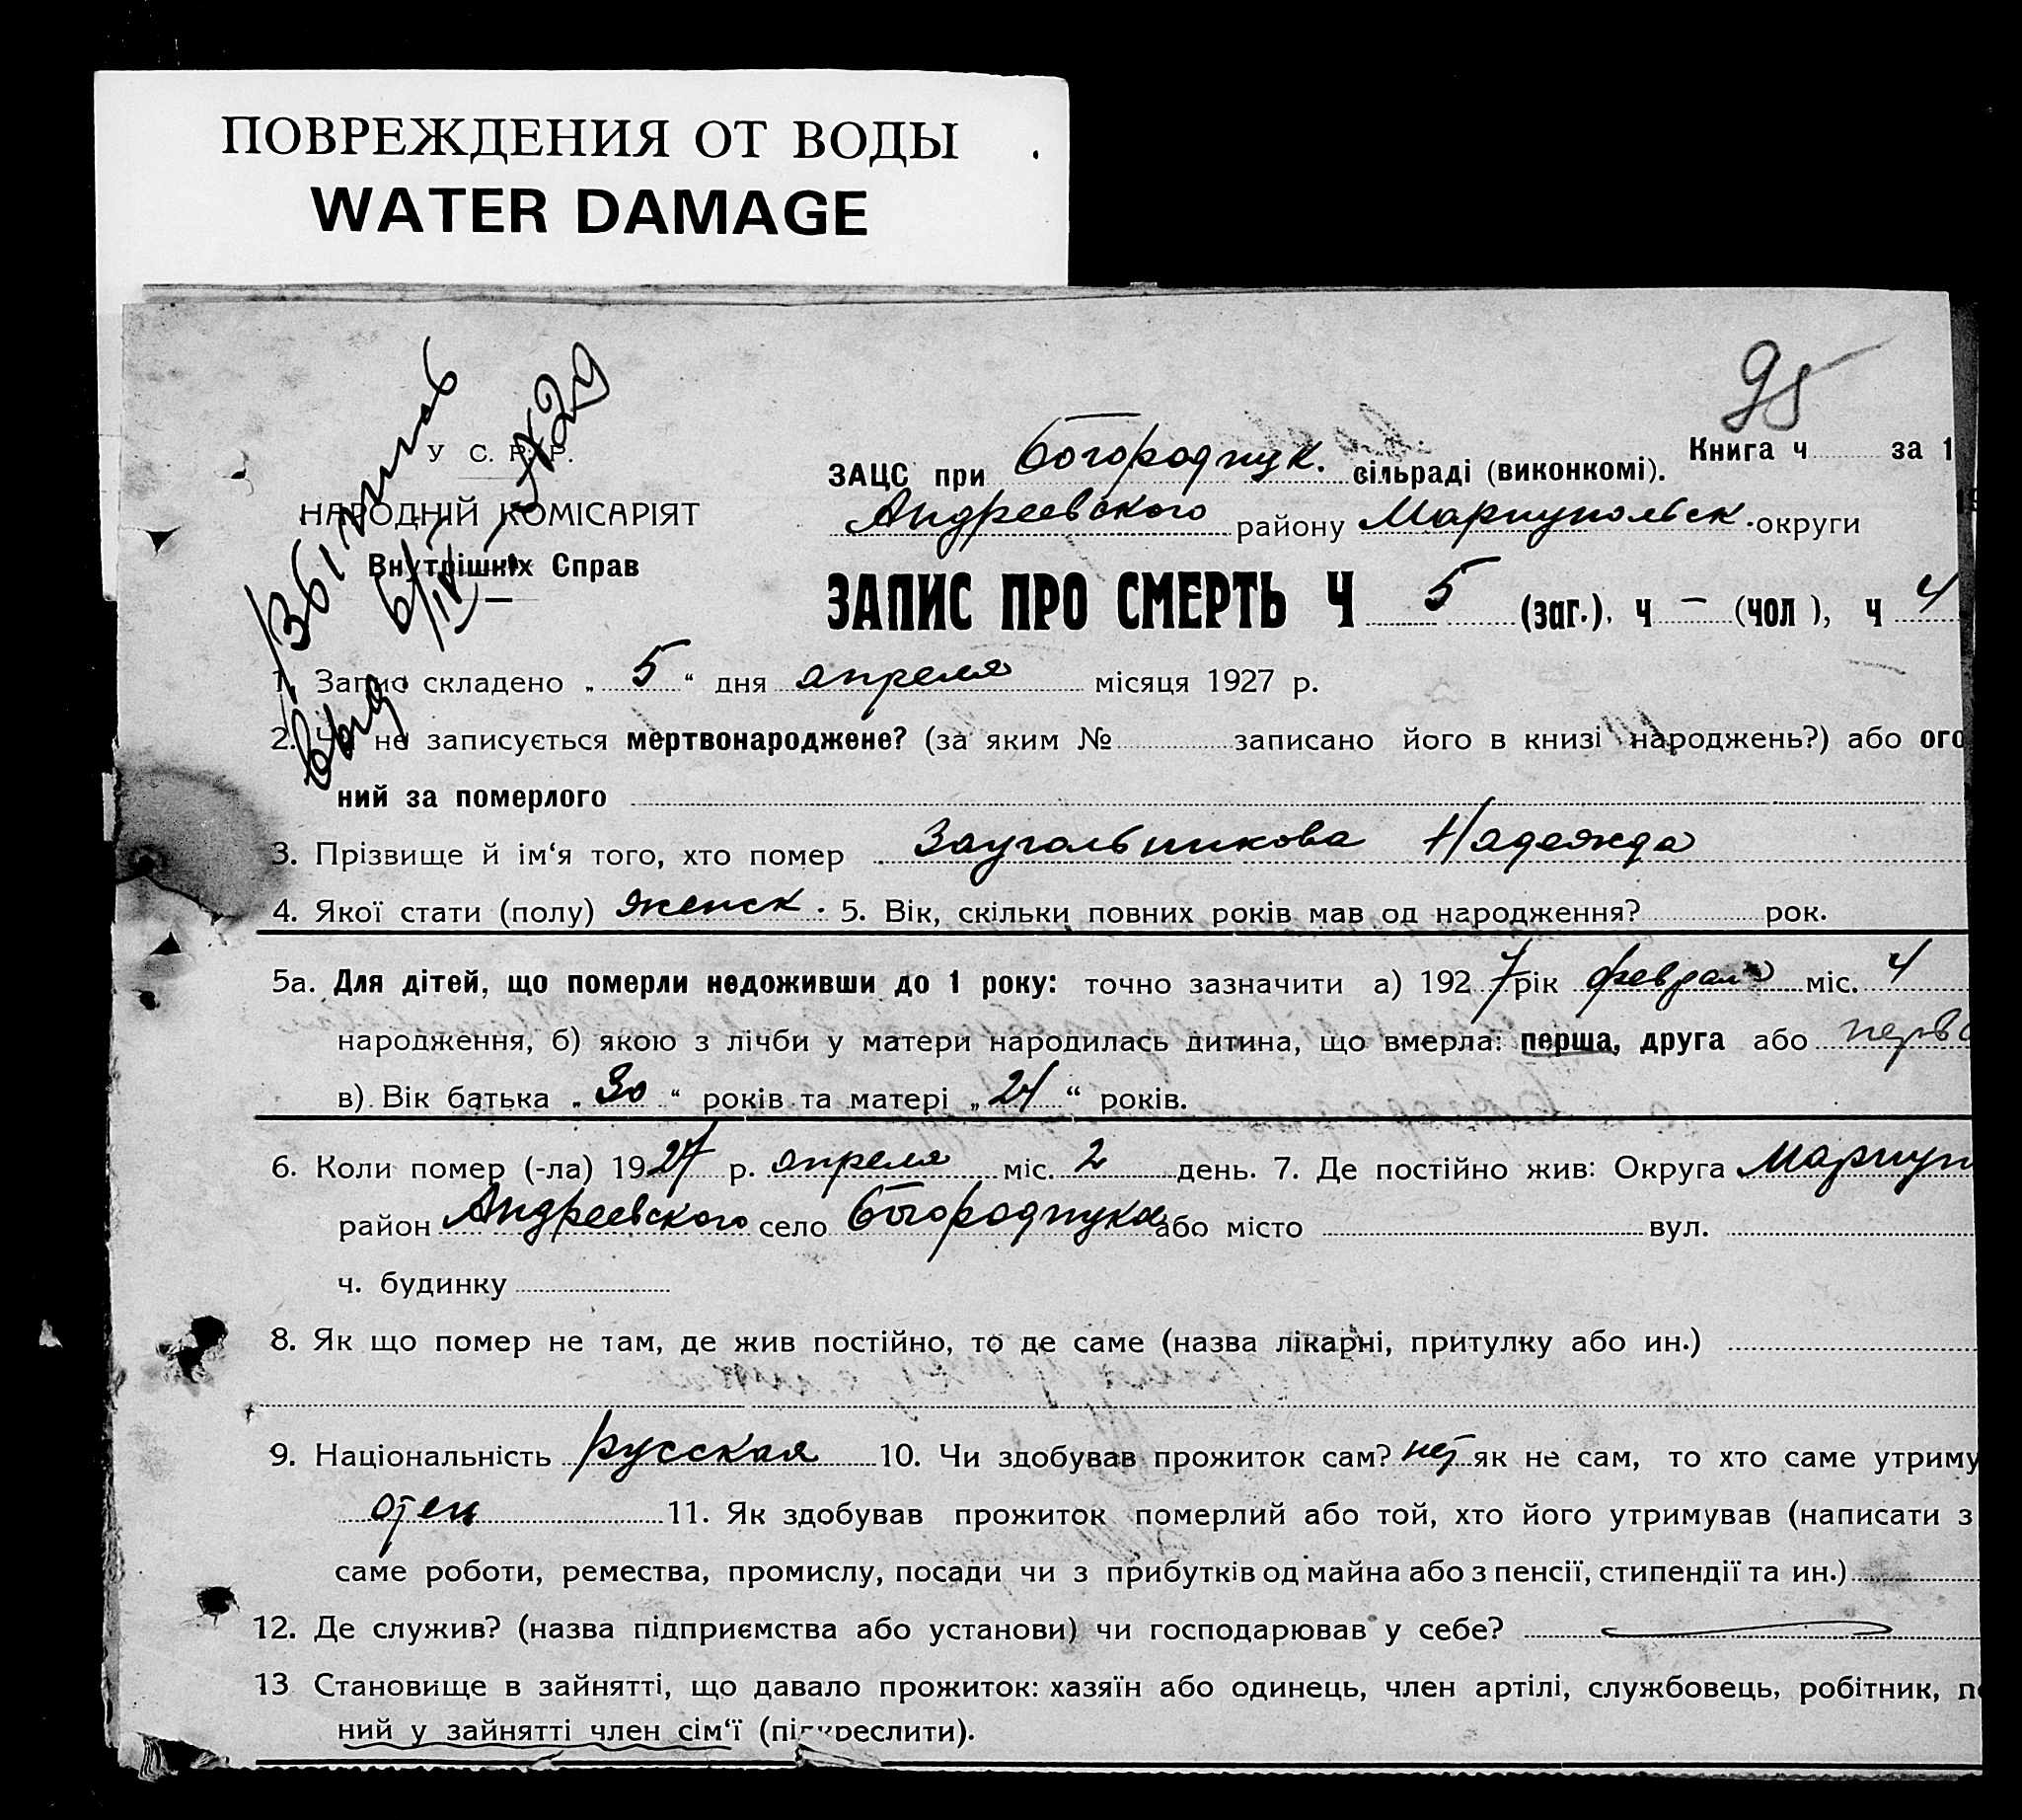 ПОВРЕЖДЕНИЯ ОТ ВОДЫ
WATER DAMAGE
95
У С. Р. Р.
НАРОДНІЙ КОМІСАРІЯТ
Внутрішніх Справ
Книга ч за 1
ЗАЦС при Богородпук. сільраді (виконкомі).
Андреевского району Мариупольск. округи
ЗАПИС ПРО СМЕРТЬ Ч 5 (заг.), ч — (чол), ч 4
1. Запис складено „5“ дня апреля місяця 1927 р.
2. не записується мертвонароджене? (за яким № записано його в книзі народжень?) або ого
ний за померлого
3. Прізвище й ім'я того, хто помер Заугольникова Надежда
4. Якої стати (полу) женск. 5. Вік, скільки повних років мав од народження? рок.
5а. Для дітей, що померли недоживши до 1 року: точно зазначити а) 1927 рік февраля міс. 4
народження, б) якою з лічби у матери народилась дитина, що вмерла: перша, друга або перва
в). Вік батька „30“ років та матері „21“ років.
6. Коли помер (-ла) 1927 р. апреля міс. 2 день. 7. Де постійно жив: Округа Мариуп
район Андреевского село або місто вул.
ч. будинку
8. Як що помер не там, де жив постійно, то де саме (назва лікарні, притулку або ин.)
9. Національність русская 10. Чи здобував прожиток сам? нет як не сам, то хто саме утриму
отец 11. Як здобував прожиток померлий або той, хто його утримував (написати з
саме роботи, ремества, промислу, посади чи з прибутків од майна або з пенсії, стипендії та ин.)
12. Де служив? (назва підприємства або установи) чи господарював у себе?
13 Становище в зайнятті, що давало прожиток: хазяїн або одинець, член артілі, службовець, робітник, по
ний у зайнятті член сім'ї (підкреслити).